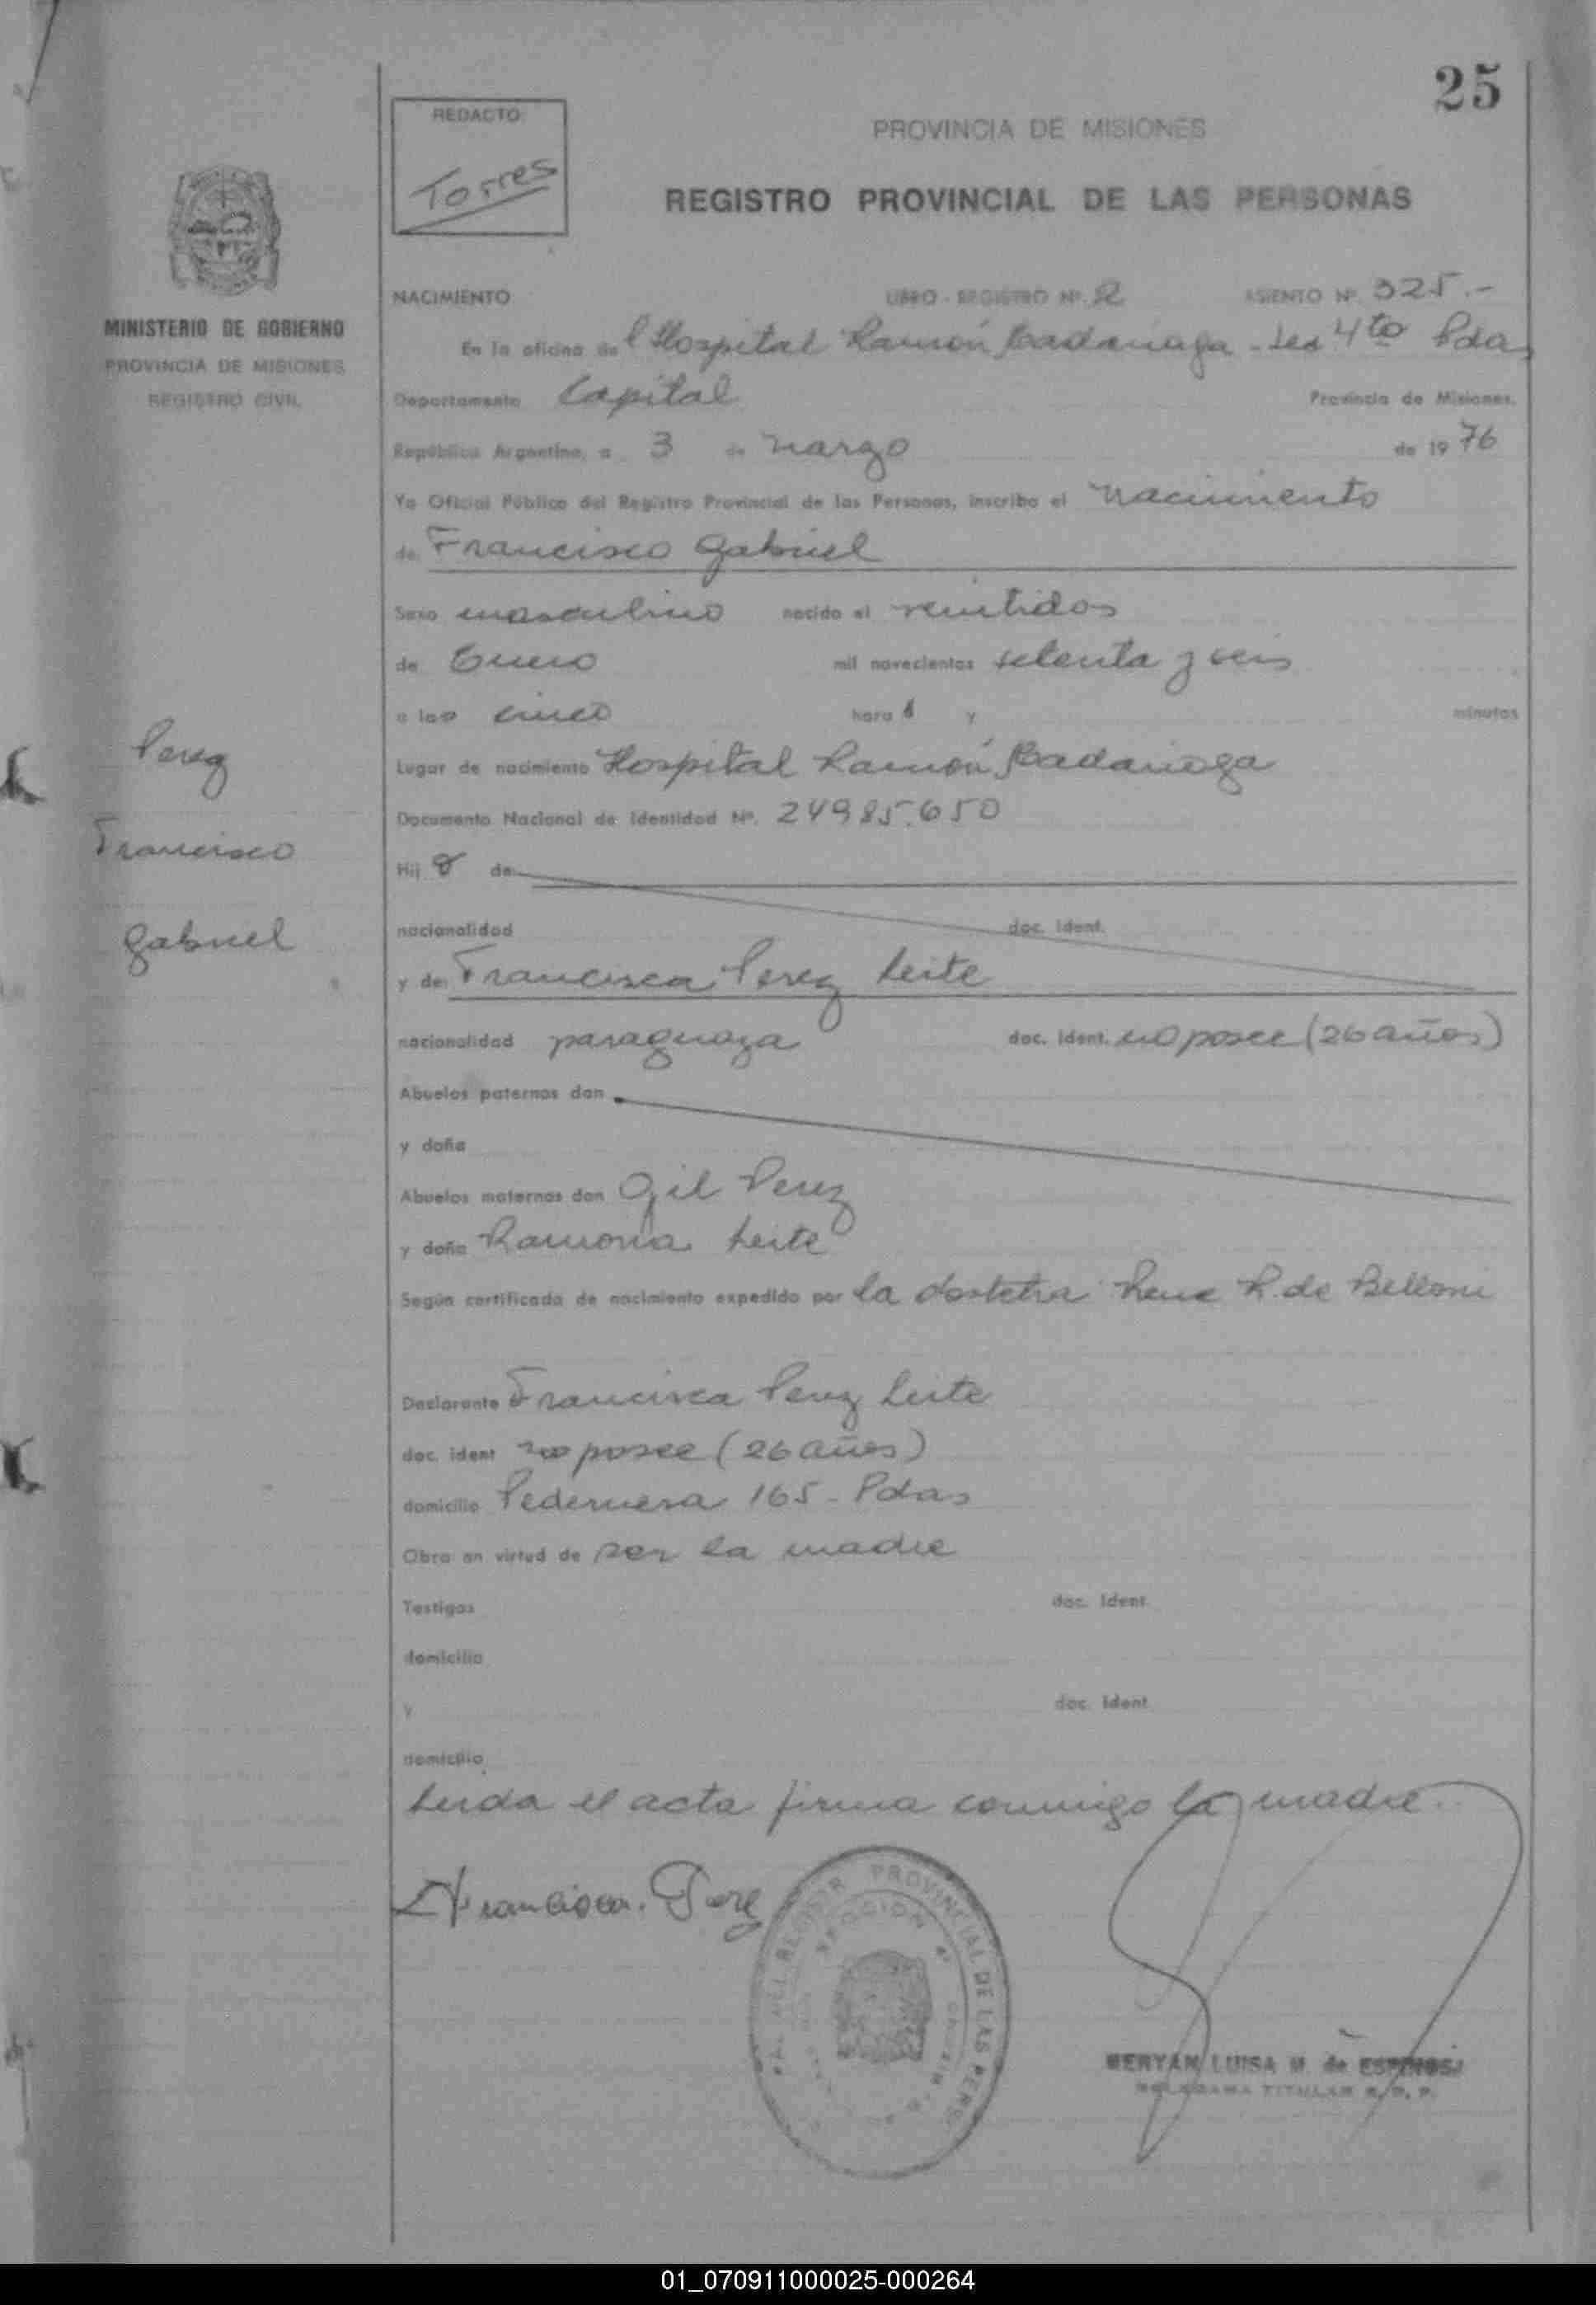 25
REDACTO
Torres
PROVINCIA DE MISIONES
REGISTRO PROVINCIAL DE LAS PERSONAS
MINISTERIO DE GOBIERNO
PROVINCIA DE MISIONES
REGISTRO CIVIL
NACIMIENTO LIBRO - REGISTRO Nº. 2 ASIENTO Nº. 325.-
En la oficina del Hospital Ramón Madariaga - Sec 4ta Pdas
Departamento Capital Provincia de Misiones.
República Argentina, a 3 de Marzo de 1976
Yo Oficial Público del Registro Provincial de las Personas, inscribo el Nacimiento
de Francisco Gabriel
Sexo masculino nacido el veintidos
de Enero mil novecientos setenta y seis
a las cinco horas y minutos
Lugar de nacimiento Hospital Ramón Madariaga
Documento Nacional de Identidad Nº. 24985.650
Perez
Francisco
Gabriel
Hijo de
nacionalidad doc. ident.
y de Francisca Perez Leite
nacionalidad paraguaya doc. ident. no posee (26 años)
Abuelos paternos don
y doña
Abuelos maternos don Gil Perez
y doña Ramona Leite
Según certificado de nacimiento expedido por la obstetra R. de Belloni
Declarante Francisca Perez Leite
doc. ident no posee (26 años)
domicilio Pedernera 165 - Pdas
Obra en virtud de ser la madre
Testigos doc. ident.
domicilio
y doc. ident
domicilio
Leida el acta firma conmigo la madre.
Francisca. Perez
REGISTR PROVINCIAL DE LAS PERS
SECCION 4
MERYAN LUISA M. de ESPINOSA
DELEGADA TITULAR R. P. P.
01_070911000025-000264